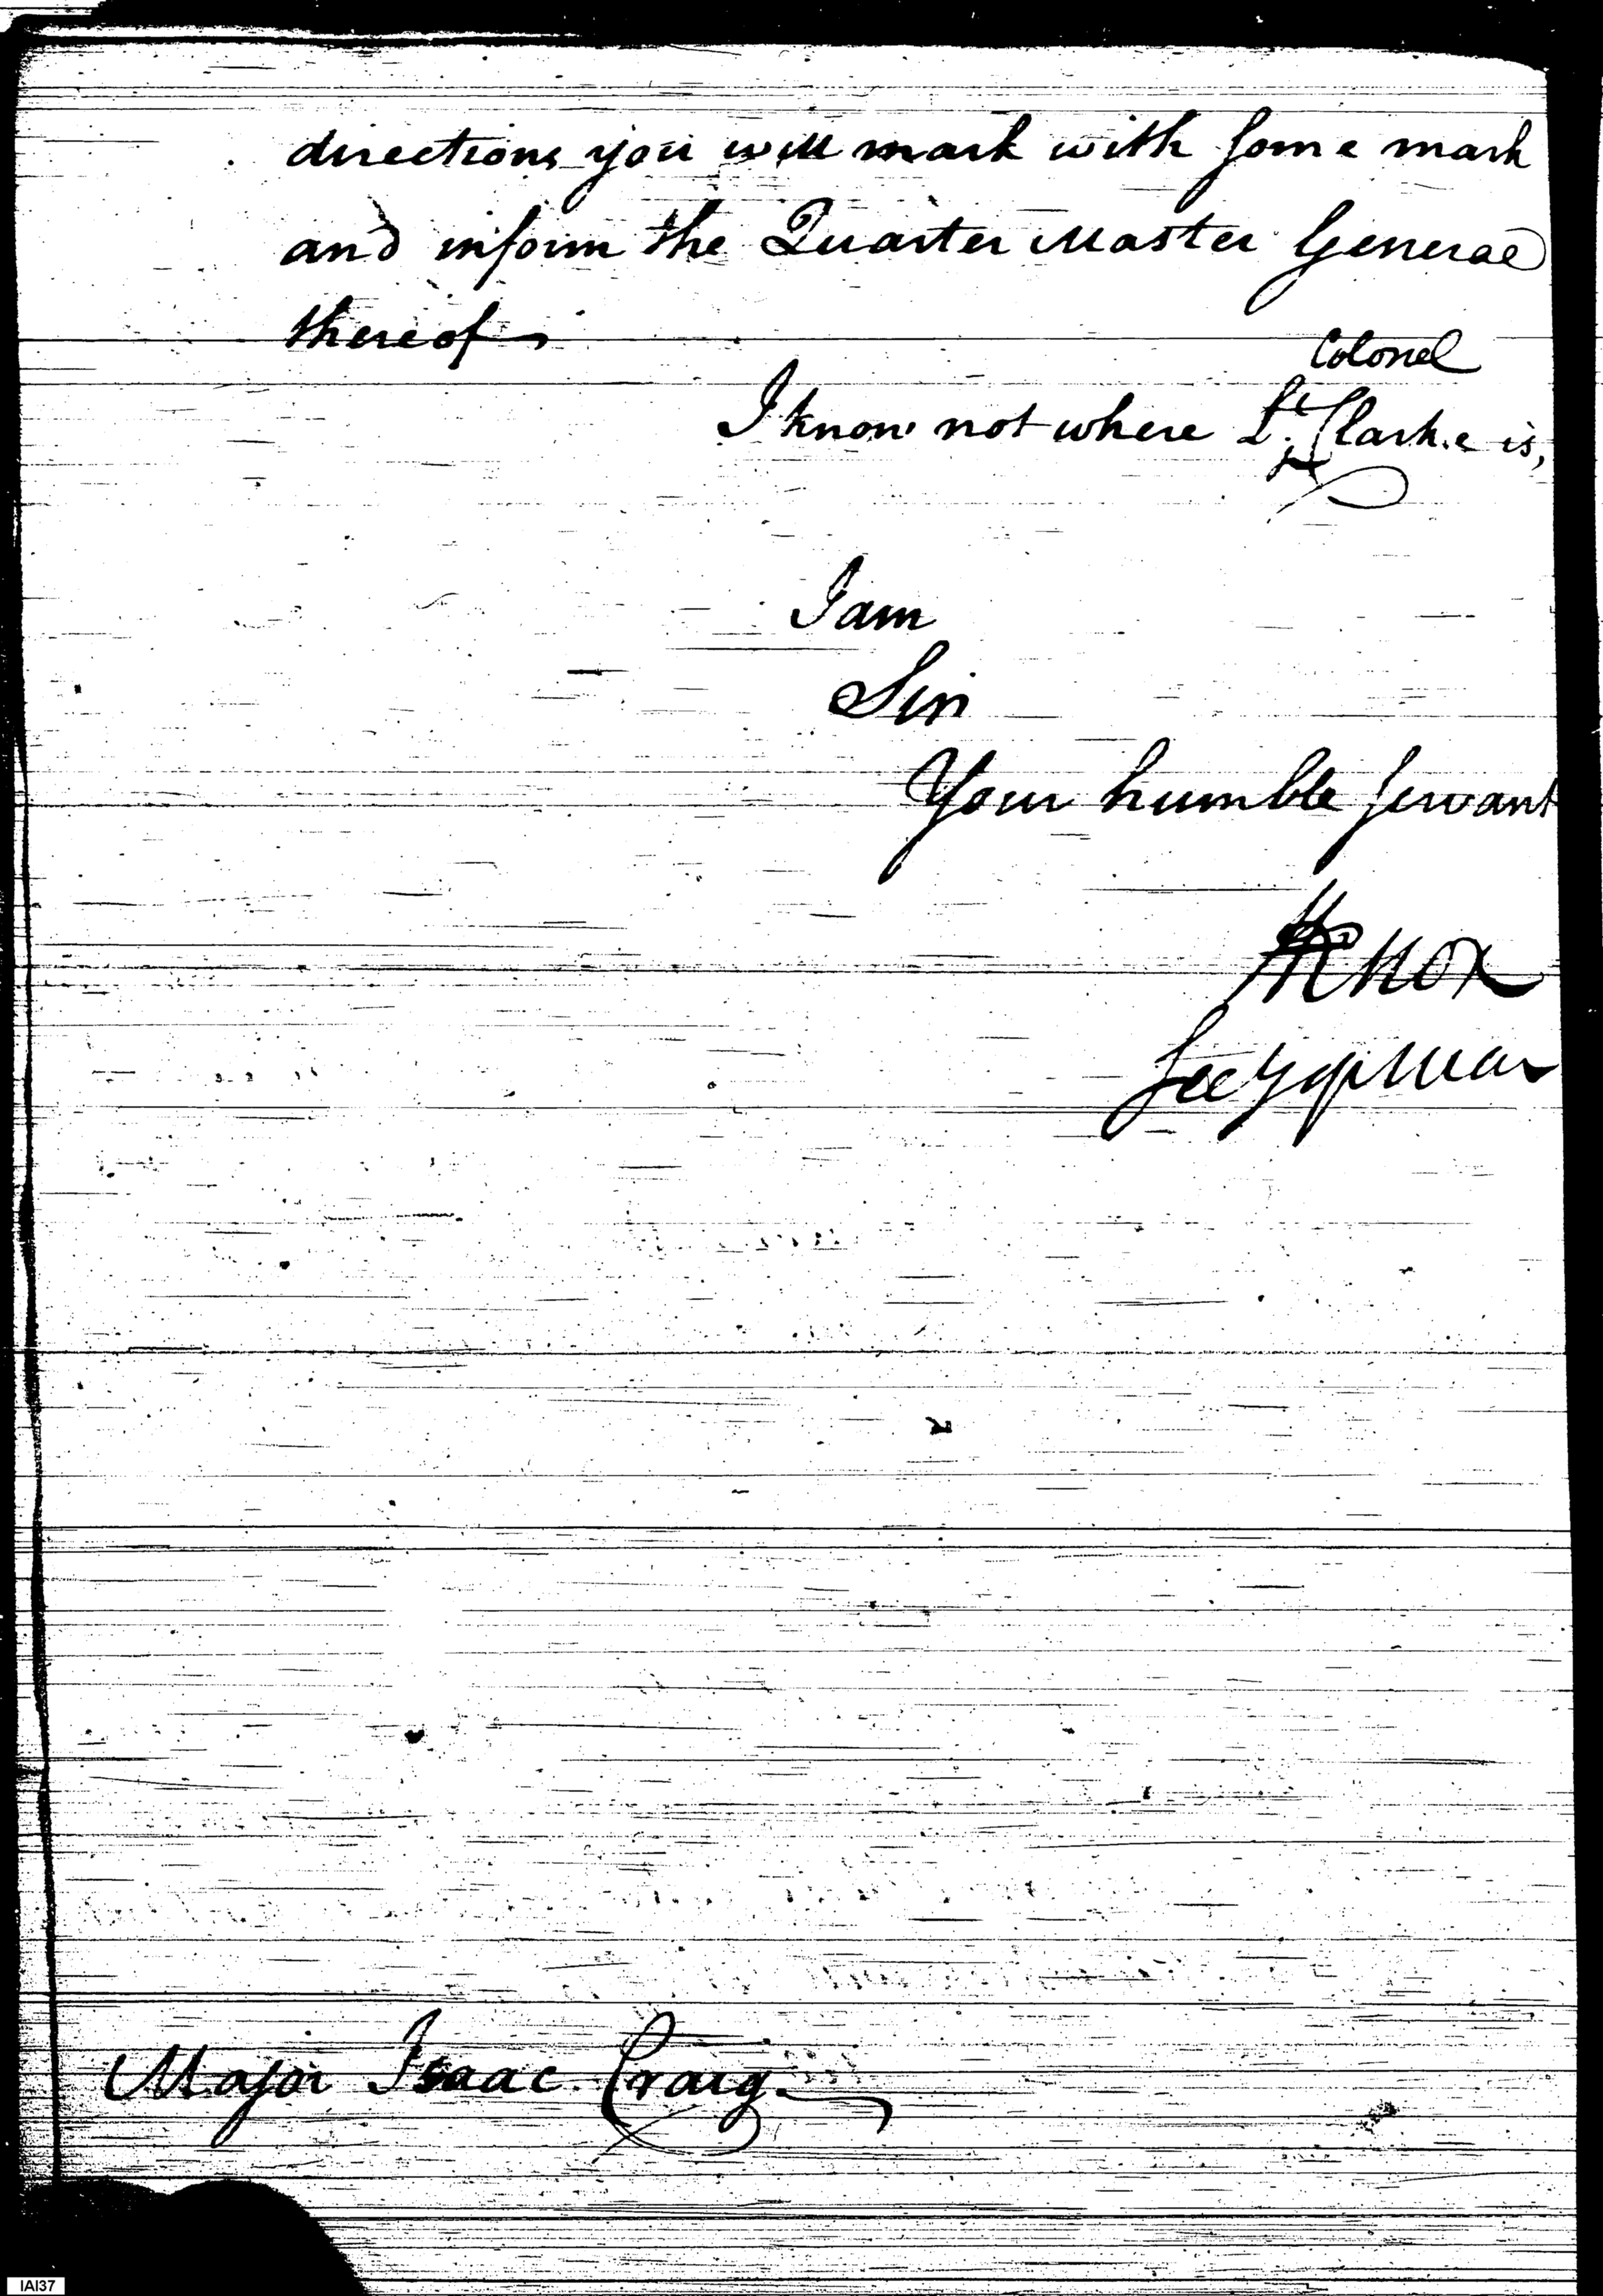 directions you will mark with some mark
and inform the Quarter Master General
thereof
Colonel
I know not where Lt. Clarke is,
I am
Sir
Your humble servant
HKnox
Secy of War
Major Isaac Craig
IAI37